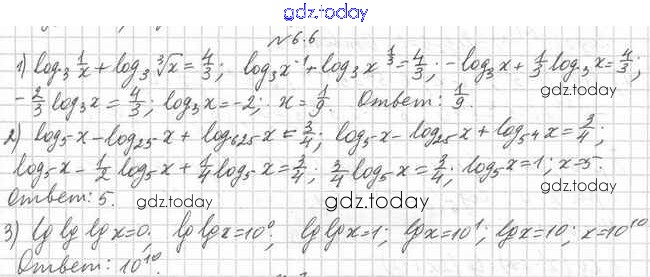 gdz.today
№6.6
1) log₃ 1/x + log₃ ∛x = 4/3; log₃x⁻¹ + log₃x^(1/3) = 4/3; -log₃x + 1/3 log₃x = 4/3;
-2/3 log₃x = 4/3; log₃x = -2; x = 1/9. Ответ: 1/9.
gdz.today
2) log₅x - log₂₅x + log₆₂₅x = 3/4; log₅x - log₂₅x + log₅₄x = 3/4;
log₅x - 1/2 log₅x + 1/4 log₅x = 3/4; 3/4 log₅x = 3/4; log₅x = 1; x = 5.
Ответ: 5. gdz.today gdz.today
3) lg lg lg x = 0; lg lg x = 10⁰; lg lg x = 1; lg x = 10¹; lg x = 10; x = 10¹⁰
Ответ: 10¹⁰.
gdz.today